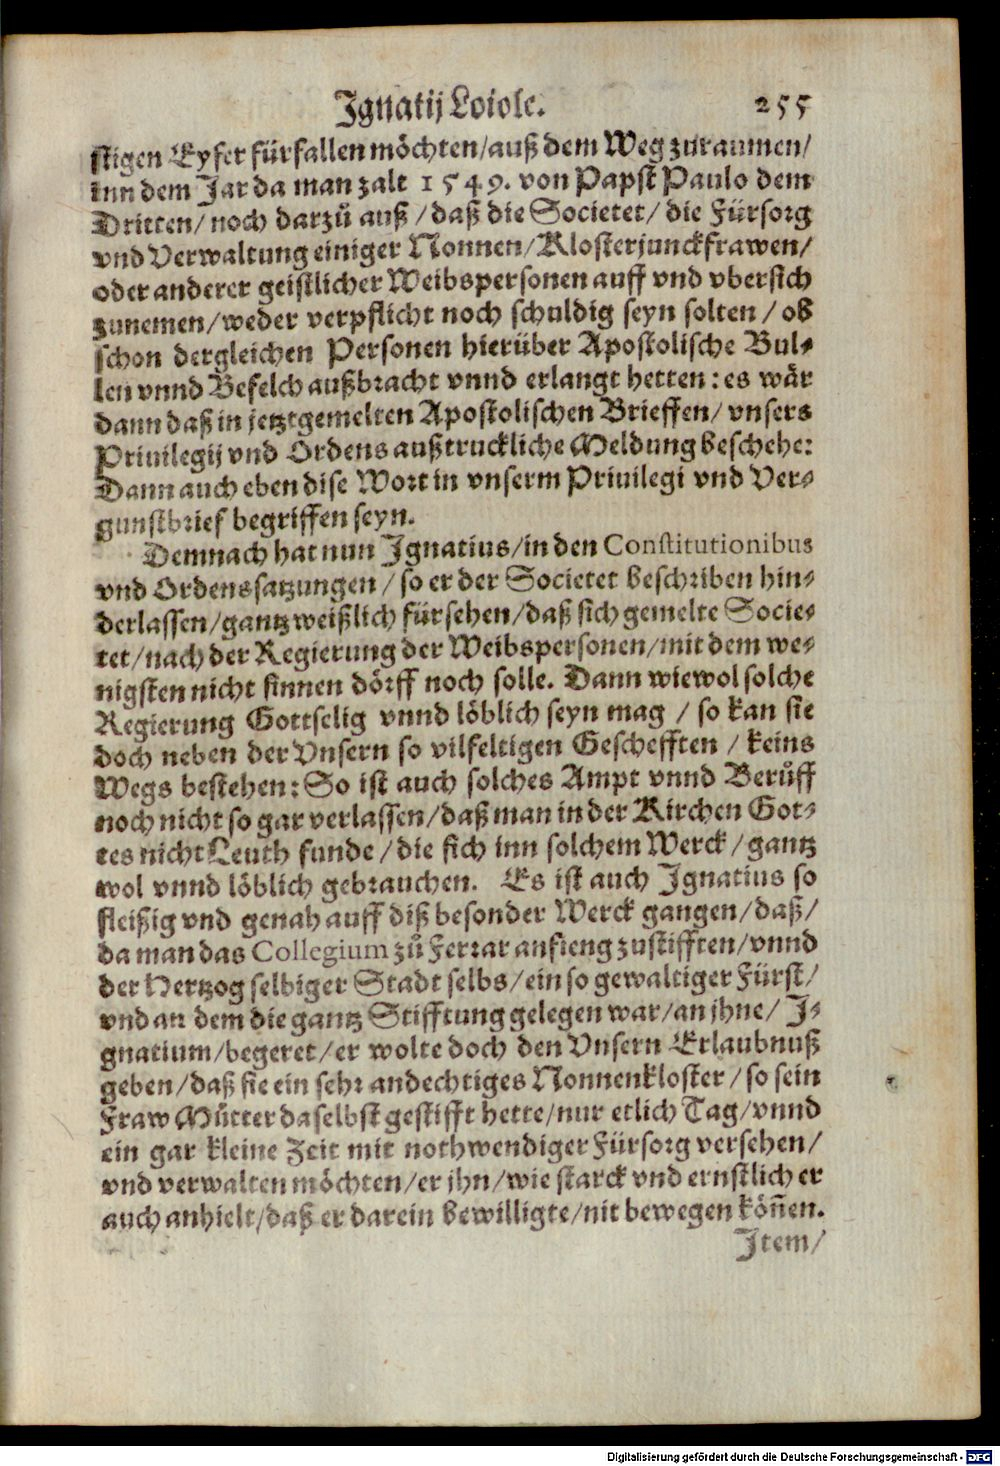 Ignatij Loiole. 255
stigen Eyfer fürfallen möchten/auß dem Weg zuraumen/
inn dem Jar da man zalt 1549. von Papst Paulo dem
Dritten/ noch darzů auß /daß die Societet/ die Fürsorg
vnd Verwaltung einiger Nonnen/Klosterjunckfrawen/
oder anderer geistlicher Weibspersonen auff vnd vbersich
zunemen/weder verpflicht noch schuldig seyn solten / ob
schon dergleichen Personen hierüber Apostolische Bul-
len vnnd Befelch außbracht vnnd erlangt hetten: es wär
dann daß in jetztgemelten Apostolischen Brieffen/ vnsers
Priuilegij vnd Ordens außtruckliche Meldung beschehe:
Dann auch eben dise Wort in vnserm Priuilegi vnd Ver-
gunstbrief begriffen seyn.
Demnach hat nun Ignatius/in den Constitutionibus
vnd Ordenssatzungen / so er der Societet beschriben hin-
derlassen/gantz weißlich fürsehen/daß sich gemelte Socie-
tet/nach der Regierung der Weibspersonen/mit dem we-
nigsten nicht sinnen dörff noch solle. Dann wiewol solche
Regierung Gottselig vnnd löblich seyn mag / so kan sie
doch neben der Vnsern so vilfeltigen Geschefften / keins
Wegs bestehen: So ist auch solches Ampt vnnd Berůff
noch nicht so gar verlassen/daß man in der Kirchen Got-
tes nicht Leuth funde /die sich inn solchem Werck /gantz
wol vnnd löblich gebrauchen. Es ist auch Ignatius so
fleißig vnd genah auff diß besonder Werck gangen/daß/
da man das Collegium zů Ferrar anfieng zustifften/vnnd
der Hertzog selbiger Stadt selbs/ein so gewaltiger Fürst/
vnd an dem die gantz Stifftung gelegen war/an jhne/ I-
gnatium/begeret/er wolte doch den Vnsern Erlaubnuß
geben/daß sie ein sehr andechtiges Nonnenkloster/so sein
Fraw Můtter daselbst gestifft hette/nur etlich Tag/vnnd
ein gar kleine Zeit mit nothwendiger Fürsorg versehen/
vnd verwalten möchten/er jhn/wie starck vnd ernstlich er
auch anhielt/daß er darein bewilligte/nit bewegen köñen.
Item/
Digitalisierung gefördert durch die Deutsche Forschungsgemeinschaft - DFG